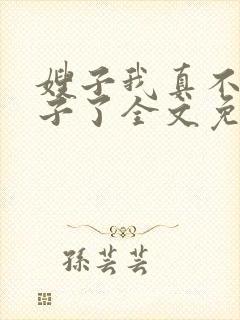 嫂子我真不
子了全文免
孫芸芸